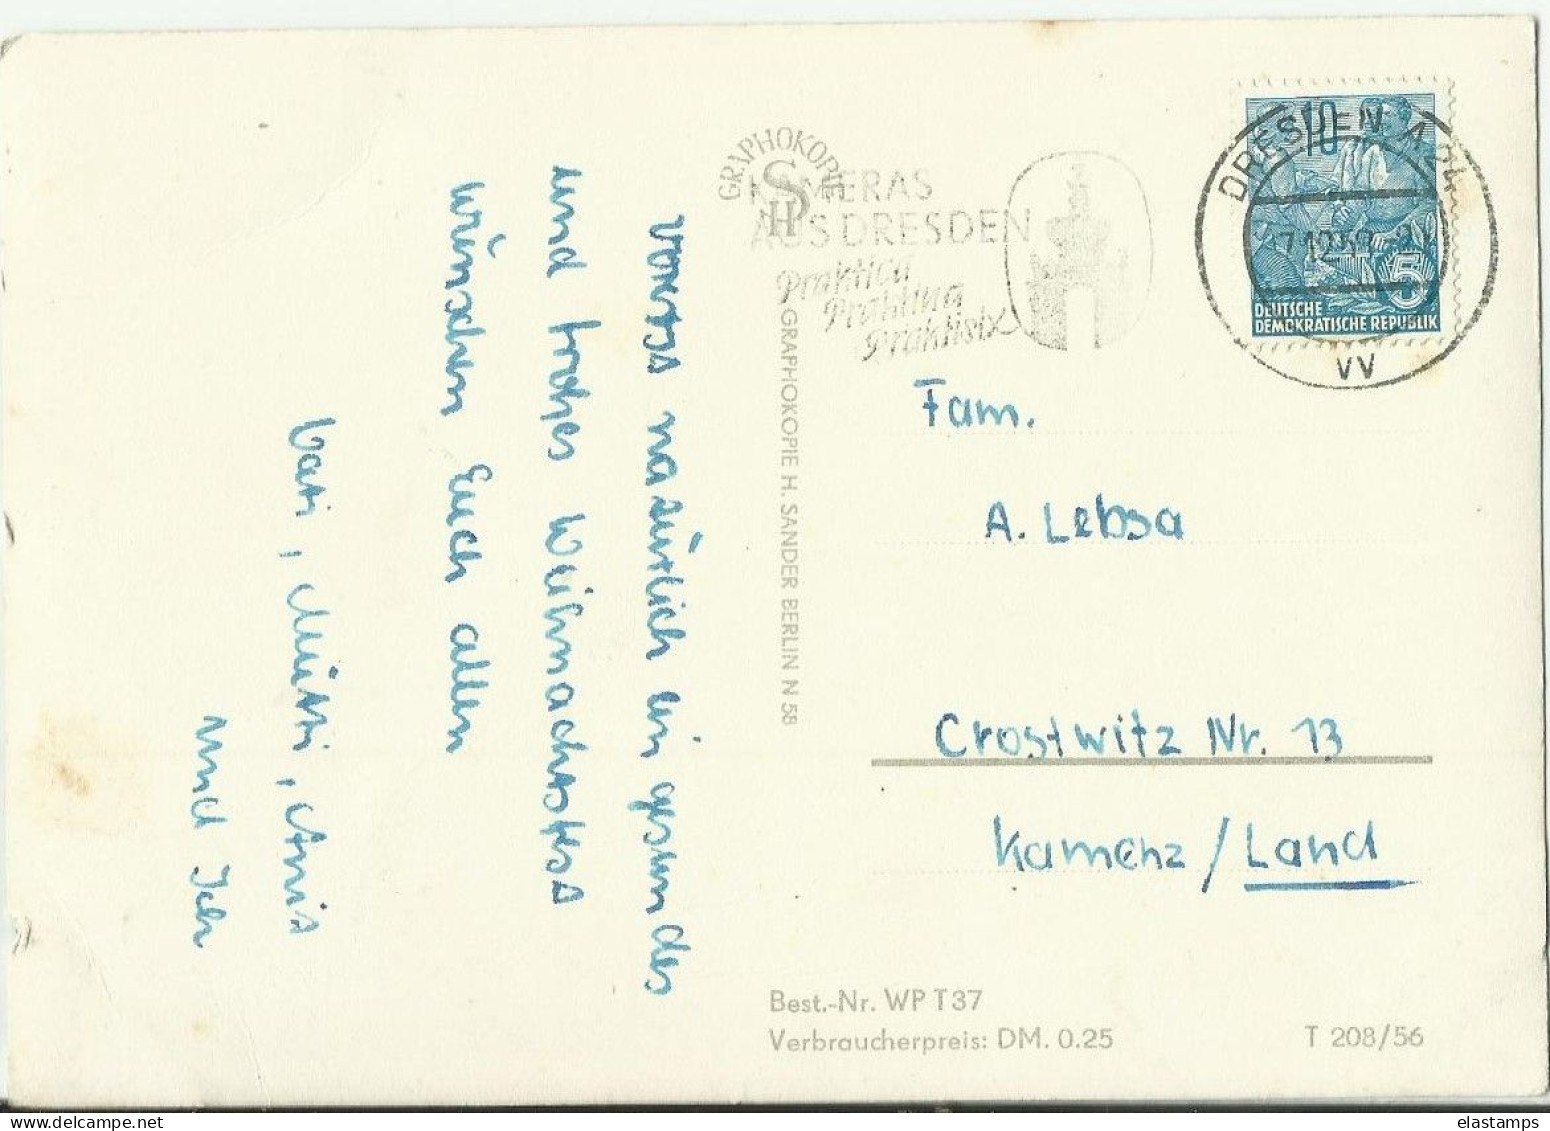 vorerst natürlich ein gesundes
und frohes Weihnachtsfest
wünschen Euch allen
Vati, Mutti, Anis
und Ich
GRAPHOKOPIE
SH
KAMERAS
AUS DRESDEN
Praktica
Praktina
Praktisix
GRAPHOKOPIE H. SANDER BERLIN N 58
DRESDEN A 24
VV
10
5
DEUTSCHE
DEMOKRATISCHE REPUBLIK
Fam.
A. Lebsa
Crostwitz Nr. 13
Kamenz / Land
Best.-Nr. WP T37
Verbraucherpreis: DM. 0.25
T 208/56
elastamps